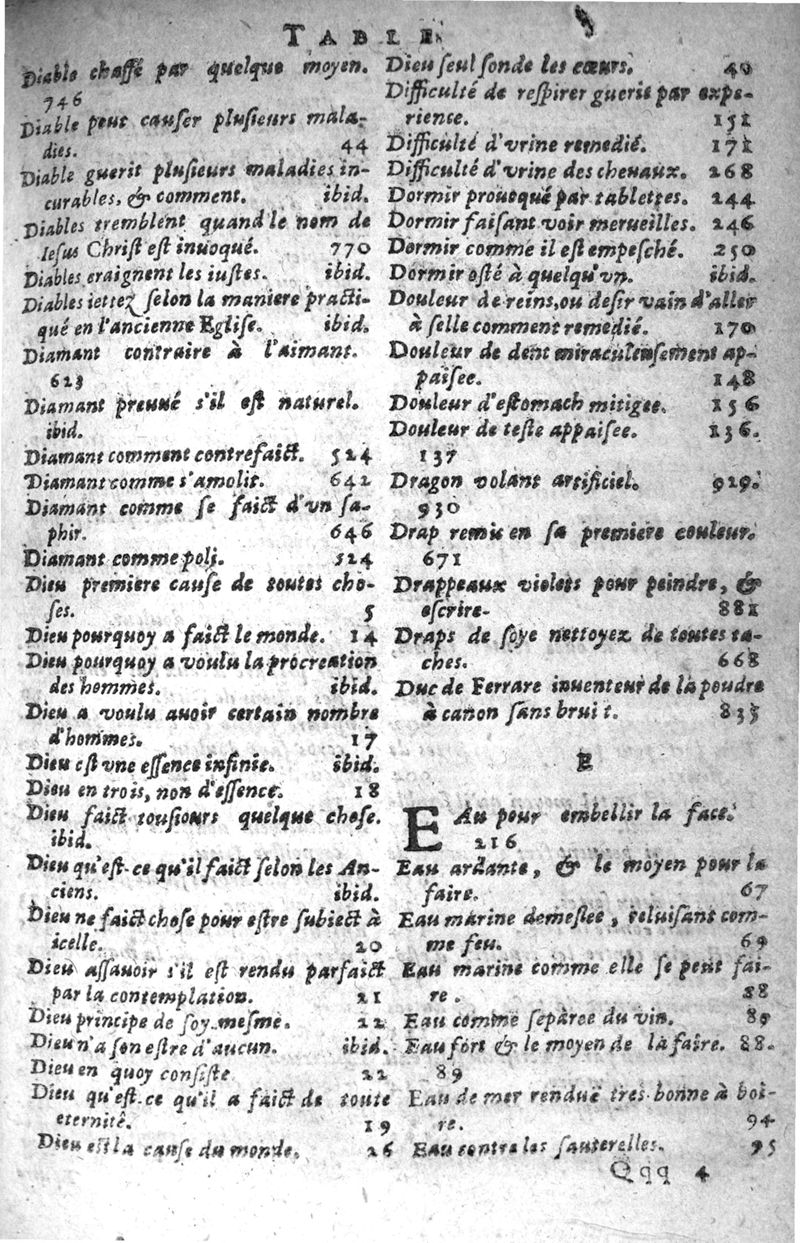 TABLE
Diable chassé par quelque moyen.
746
Diable peut causer plusieurs mala-
dies. 44
Diable guerit plusieurs maladies in-
curables, & comment. ibid.
Diables tremblent quand le nom de
Iesus Christ est inuoqué. 770
Diables craignent les iustes. ibid.
Diables iettez selon la maniere practi-
qué en l'ancienne Eglise. ibid.
Diamant contraire à l'aimant.
623
Diamant preuué s'il est naturel.
ibid.
Diamant comment contrefaict. 524
Diamant comme s'amolit. 642
Diamant comme se faict d'vn sa-
phir. 646
Diamant comme poli. 524
Dieu premiere cause de toutes cho-
ses. 5
Dieu pourquoy a faict le monde. 14
Dieu pourquoy a voulu la procreation
des hommes. ibid.
Dieu a voulu auoir certain nombre
d'hommes. 17
Dieu est vne essence infinie. ibid.
Dieu en trois, non d'essence. 18
Dieu faict tousiours quelque chose.
ibid.
Dieu qu'est-ce qu'il faict selon les An-
ciens. ibid.
Dieu ne faict chose pour estre subiect à
icelle. 20
Dieu assauoir s'il est rendu parfaict
par la contemplation. 21
Dieu principe de soy-mesme. 22
Dieu n'a son estre d'aucun. ibid.
Dieu en quoy consiste 22
Dieu qu'est-ce qu'il a faict de toute
eternité. 19
Dieu est la cause du monde. 26
Dieu seul sonde les cœurs. 40
Difficulté de respirer guerie par expe-
rience. 151
Difficulté d'vrine remedié. 171
Difficulté d'vrine des cheuaux. 268
Dormir prouoqué par tablettes. 244
Dormir faisant voir merueilles. 246
Dormir comme il est empesché. 250
Dormir osté à quelqu'vn. ibid.
Douleur de reins, ou desir vain d'aller
à selle comment remedié. 170
Douleur de dent miraculeusement ap-
paisee. 148
Douleur d'estomach mitigee. 156
Douleur de teste appaisee. 136.
137
Dragon volant artificiel. 929.
930
Drap remis en sa premiere couleur.
671
Drappeaux violets pour peindre, &
escrire. 881
Draps de soye nettoyez de toutes ta-
ches. 668
Duc de Ferrare inuenteur de la poudre
à canon sans bruit. 835
E
EAu pour embellir la face.
216
Eau ardante, & le moyen pour la
faire. 67
Eau marine demeslee, reluisant com-
me feu. 69
Eau marine comme elle se peut fai-
re. 88
Eau comme separee du vin. 89
Eau fort & le moyen de la faire. 88.
89
Eau de mer renduë tres-bonne à boi-
re. 94
Eau contre les sauterelles. 95
Qqq 4